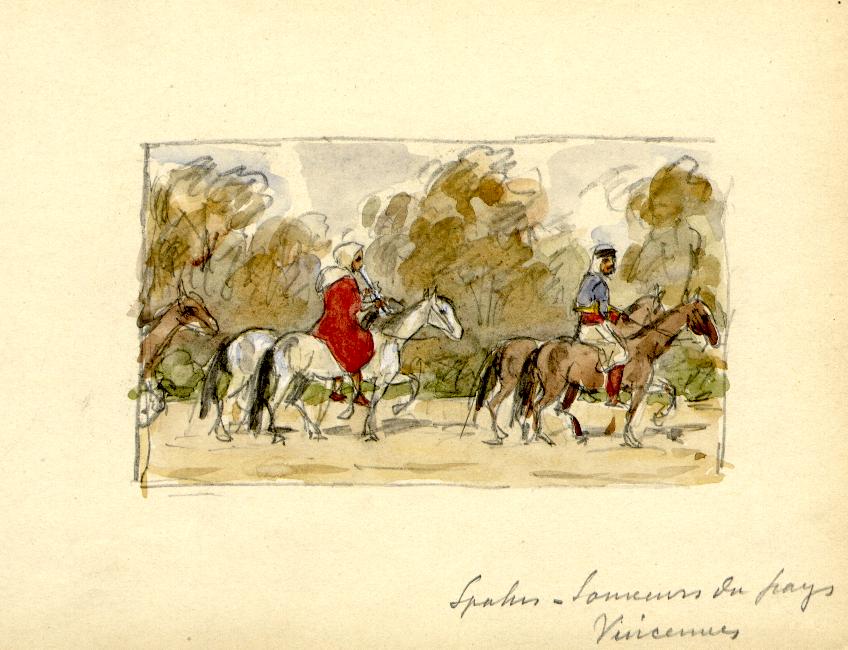 Spahis - Sonneurs du pays
Vincennes